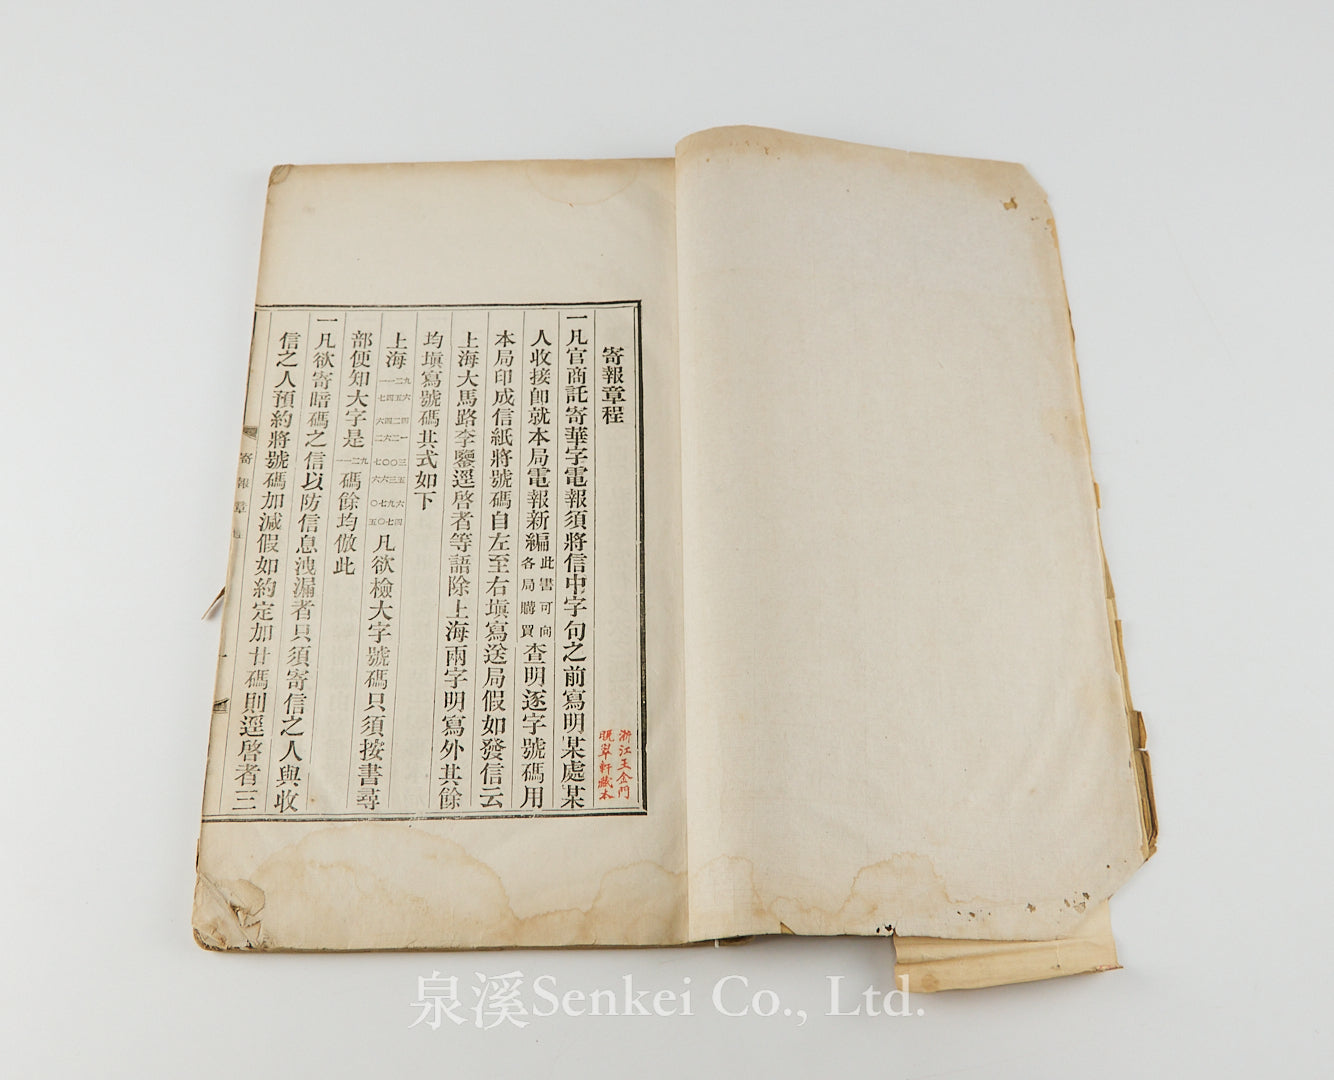 寄報章程
浙江王金門
晩翠軒藏本
一凡官商託寄華字電報須將信中字句之前寫明某處某
人收接卽就本局電報新編此書可向各局購買查明逐字號碼用
本局印成信紙將號碼自左至右塡寫送局假如發信云
上海大馬路李鑒逕啓者等語除上海兩字明寫外其餘
均塡寫號碼其式如下
上海 一一二九 七四五六 六四二四 二六二一 七〇〇三 六六三五 〇七九六 五〇七四 凡欲檢大字號碼只須按書尋
部便知大字是一一二九碼餘均倣此
一凡欲寄暗碼之信以防信息洩漏者只須寄信之人與收
信之人預約將號碼加減假如約定加廿碼則逕啓者三
寄報章程
一
泉溪Senkei Co., Ltd.